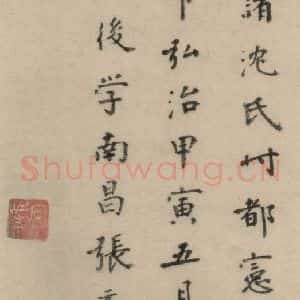 諸沈氏付都憲
弘治甲寅五月
後学南昌張
Shufawang.cn